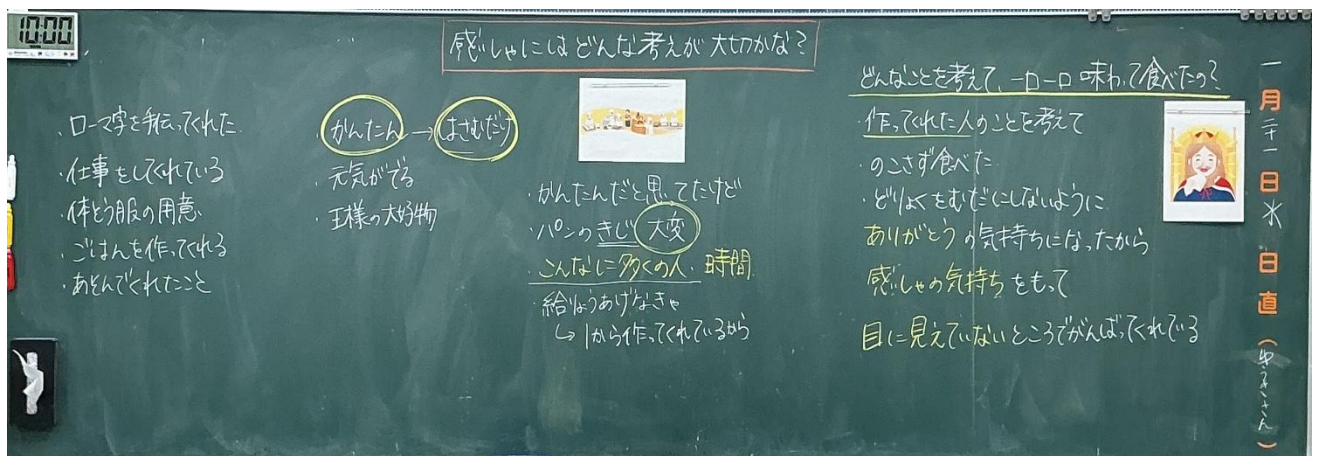 10:00
感しゃにはどんな考えが大切かな?
・ローマ字を手伝ってくれた
・仕事をしてくれている
・体そう服の用意
・ごはんを作ってくれる
・あそんでくれたこと
・かんたん→はさむだけ
・元気がでる
・王様の大好物
・かんたんだと思ってたけど
・パンのきじ 大変
・こんなに多くの人、時間
・給りょうあげなきゃ
↳1から作ってくれているから
どんなことを考えて、一口一口味わって食べたの?
・作ってくれた人のことを考えて
・のこさず食べた
・どりょくをむだにしないように
ありがとうの気持ちになったから
感しゃの気持ちをもって
目に見えていないところでがんばってくれている
一月二十一日水日直( さん)